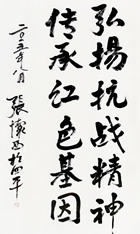 弘揚抗战精神
传承红色基因
二〇一五年八月
張懷西於北京